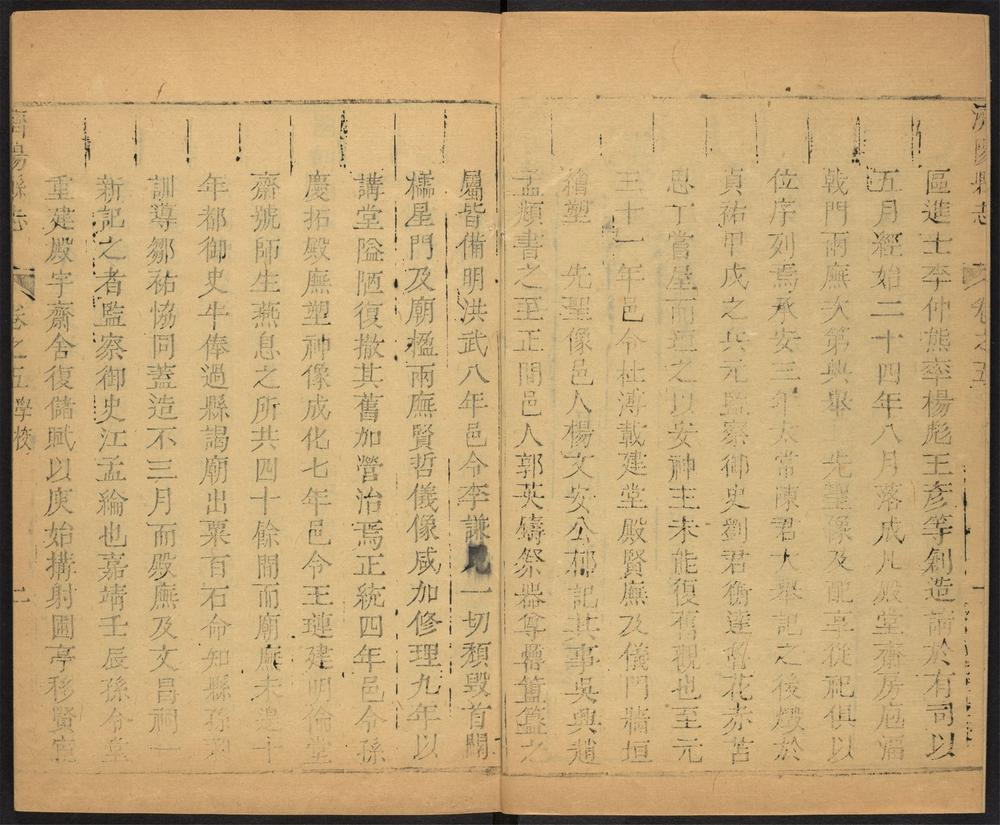 濟陽縣志 卷之五 一
區進士李仲熊率楊彪王彥等創造請於有司以
五月經始二十四年八月落成凡殿堂齋房庖湢
戟門兩廡次第興舉 先聖像及配享從祀俱以
位序列焉承安三年太常陳君大舉記之後燬於
貞祐甲戌之兵元監察御史劉君衡達魯花赤苫
思丁嘗屋而垣之以安神主未能復舊觀也至元
三十一年邑令杜溥載建堂殿賢廡及儀門牆垣
繪塑 先聖像邑人楊文安公 記其事吳興趙
孟頫書之至正間邑人郭英鑄祭器尊罍簠簋之
屬皆備明洪武八年邑令李謙見一切頹毀首闢
櫺星門及廟楹兩廡賢哲儀像咸加修理九年以
講堂隘陋復撤其舊加營治焉正統四年邑令孫
慶拓殿廡塑神像成化七年邑令王璉建明倫堂
齋號師生燕息之所共四十餘間而廟廡未 十
年都御史牛俸過縣謁廟出粟百石命知縣孫
訓導鄒祐恊同蓋造不三月而殿廡及文昌祠一
新記之者監察御史江孟綸也嘉靖壬辰孫令堂
重建殿宇齋舍復儲賦以庾始搆射圃亭移賢宦
濟陽縣志 卷之五 學校 二